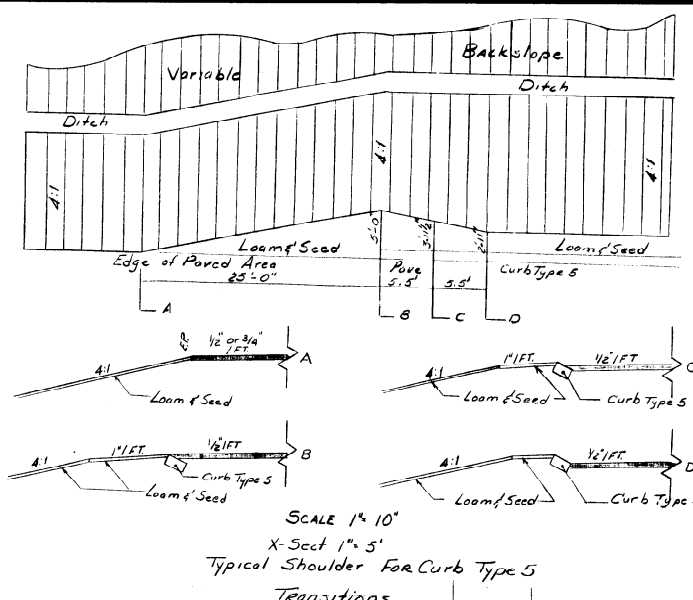 Backslope
Variable
Ditch
Ditch
4:1
4:1
4:1
5'-0"
3'-11½"
Loam & Seed
Loam & Seed
Edge of Paved Area
25'-0"
Pave
5.5'
5.5'
Curb Type 5
A
B
C
D
E.P.
½" or ¾"
/FT.
4:1
A
Loam & Seed
4:1
1"/FT.
½"/FT
C
Loam & Seed
Curb Type 5
4:1
1"/FT.
½"/FT
B
Curb Type 5
Loam & Seed
4:1
½"/FT.
D
Loam & Seed
Curb Type
SCALE 1"= 10"
X-Sect 1"= 5'
Typical Shoulder FOR Curb Type 5
Transitions